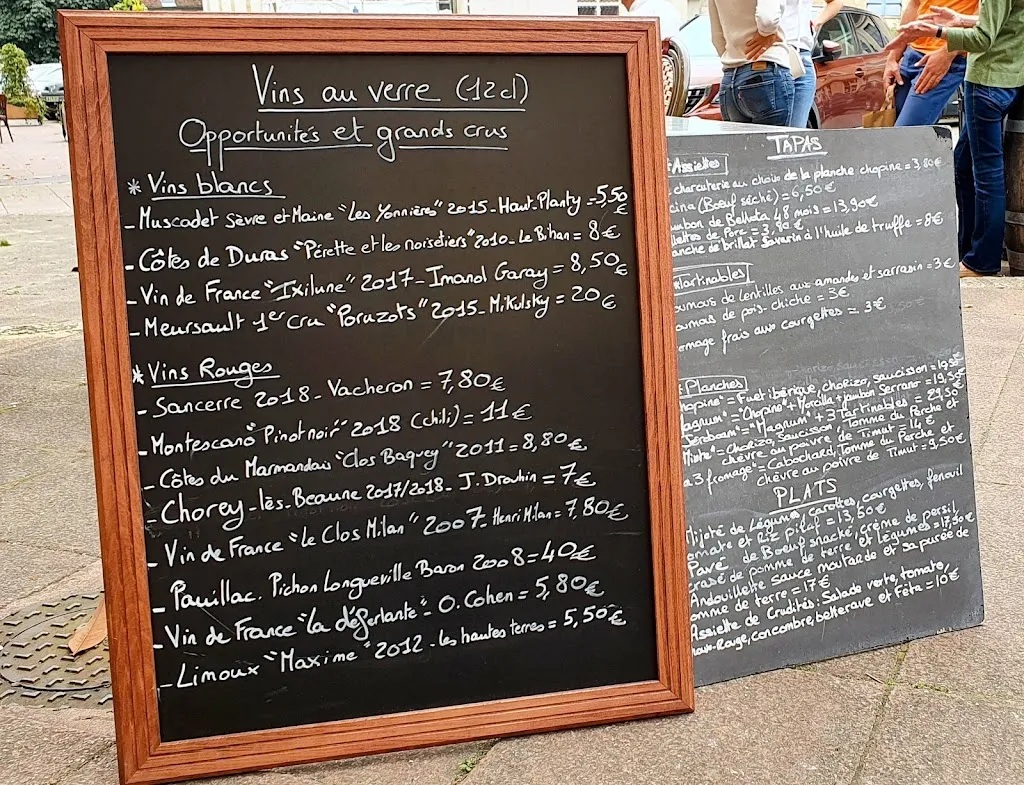 Vins au verre (12cl)
Opportunités et grands crus
* Vins blancs
- Muscadet sèvre et Maine "Les Yonnières" 2015 - Haut-Planty - 5,50 €
- Côtes de Duras "Perette et les noisetiers" 2010 - Le Bihan = 8 €
- Vin de France "Ixilune" 2017 - Imanol Garay = 8,50 €
- Meursault 1er Cru "Poruzots" 2015 - Mikulsky = 20 €
* Vins Rouges
- Sancerre 2018 - Vacheron = 7,80 €
- Montescano "Pinot noir" 2018 (chili) = 11 €
- Côtes du Marmandais "Clos Baqvey" 2011 = 8,80 €
- Chorey-lès-Beaune 2017/2018 - J. Drouhin = 7 €
- Vin de France "Le Clos Milan" 2007 - Henri Milan = 7,80 €
- Pauillac. Pichon Longueville Baron 2008 = 40 €
- Vin de France "La déferlante" - O. Cohen = 5,80 €
- Limoux "Maxime" 2012 - les hautes terres = 5,50 €
TAPAS
Assiettes
charcuterie au choix de la planche chopine = 3,80 €
cina (Bœuf séché) = 6,50 €
ambon de Bellota 48 mois = 13,90 €
llettes de Porc = 3,80 €
anche de brillat Savarin à l'huile de truffe = 8 €
Tartinables
oumous de Lentilles aux amandes et sarrasin = 3 €
oumous de pois-chiche = 3 €
omage frais aux courgettes = 3 €
Planches
hopine" = Fuet ibérique, chorizo, saucisson = 19,50 €
agnum" = "Chopine" + Morcilla + jambon Serrano = 19,50 €
Jéroboam" = "Magnum" + 3 Tartinables = 29,50 €
Mixte" = Chorizo, Saucisson, Tomme du Perche et
chèvre au poivre de Timut = 14 €
a 3 fromage" = Cabochard, Tomme du Perche et
chèvre au poivre de Timut = 9,50 €
PLATS
Mijoté de Légumes, carottes, courgettes, fenouil
omate et Riz pilaf = 13,50 €
Pavé de Boeuf snacké, crème de persil
crasé de pomme de terre et légumes = 17,50 €
Andouillette sauce moutarde et sa purée de
omme de terre = 17 €
Assiette de Crudités: Salade verte, tomate,
houx-Rouge, concombre, betterave et Féta = 10 €